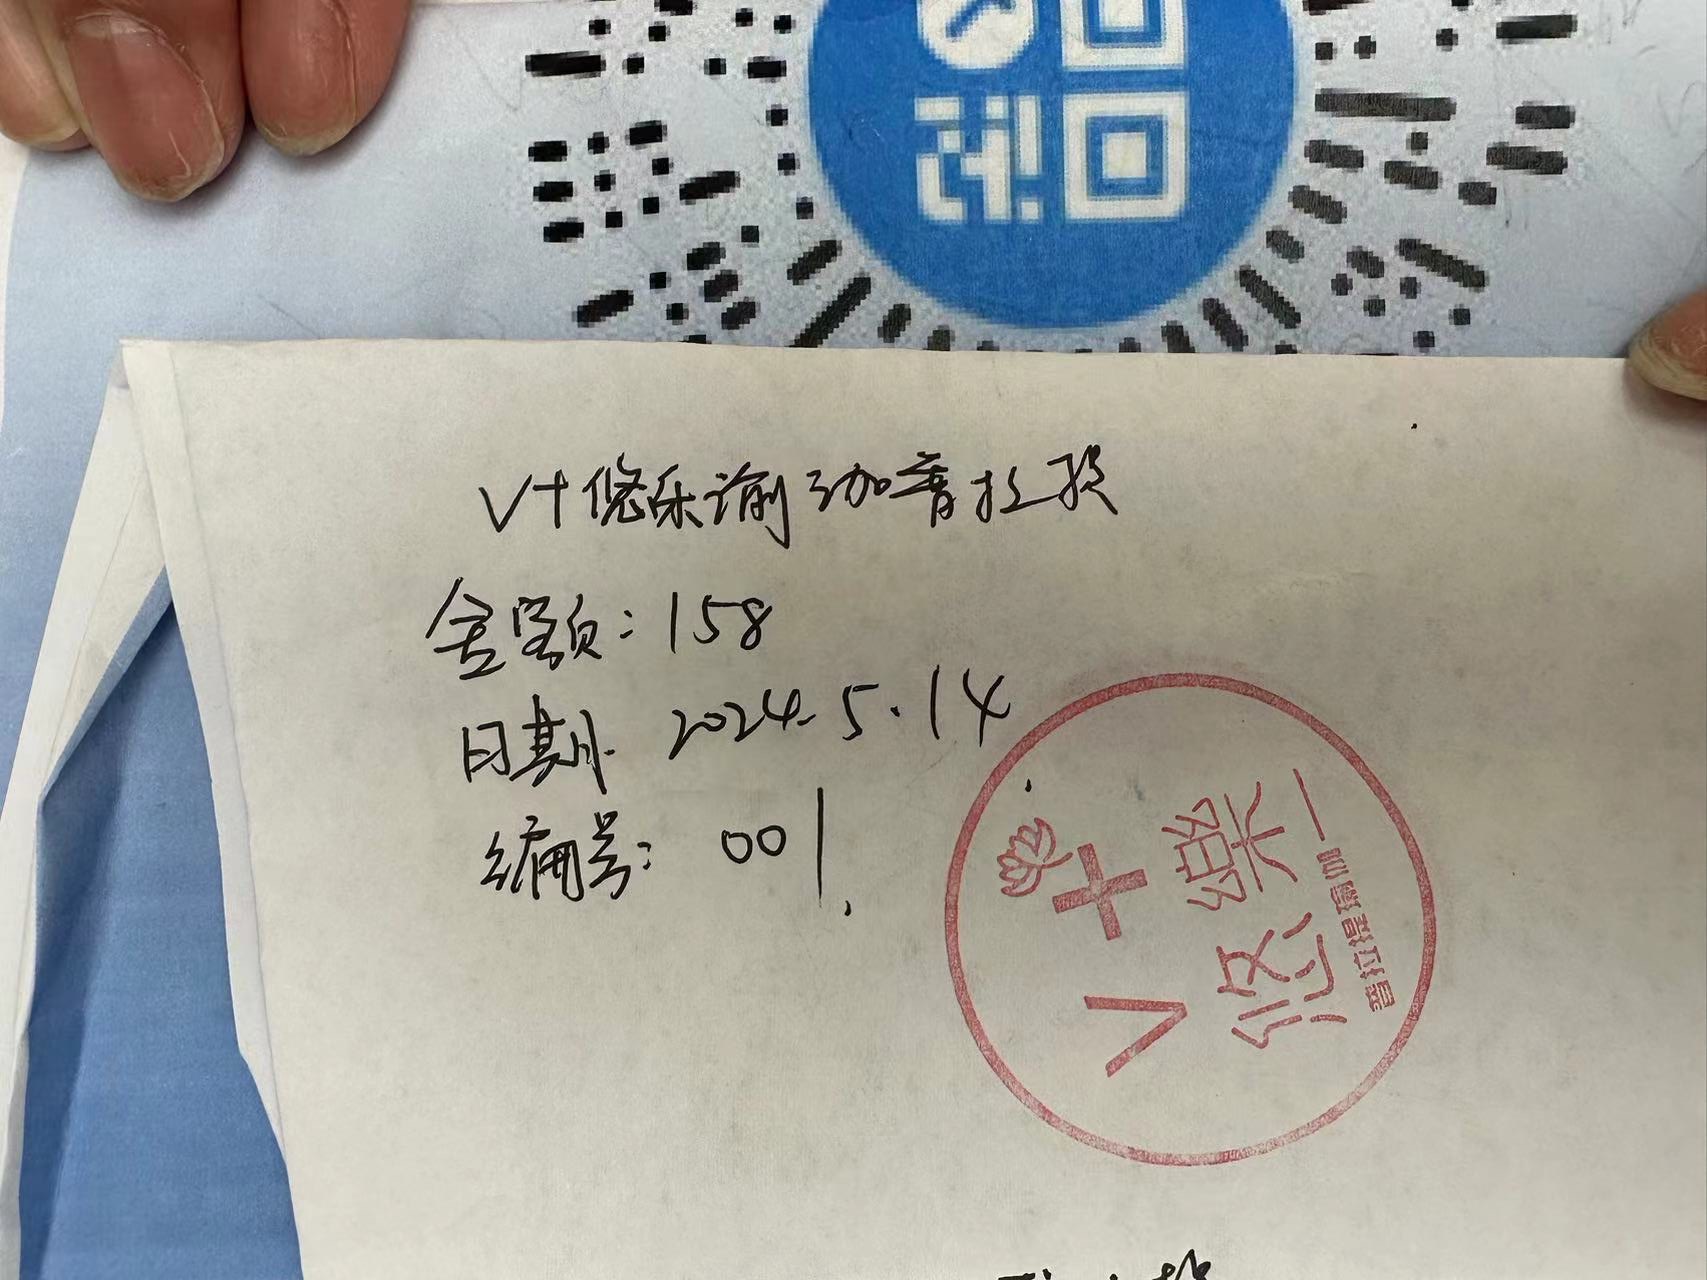 V+悠乐谕珈普拉提
金额：158
日期 2024.5.14
编号：001.
V+
悠樂
普拉提瑜伽